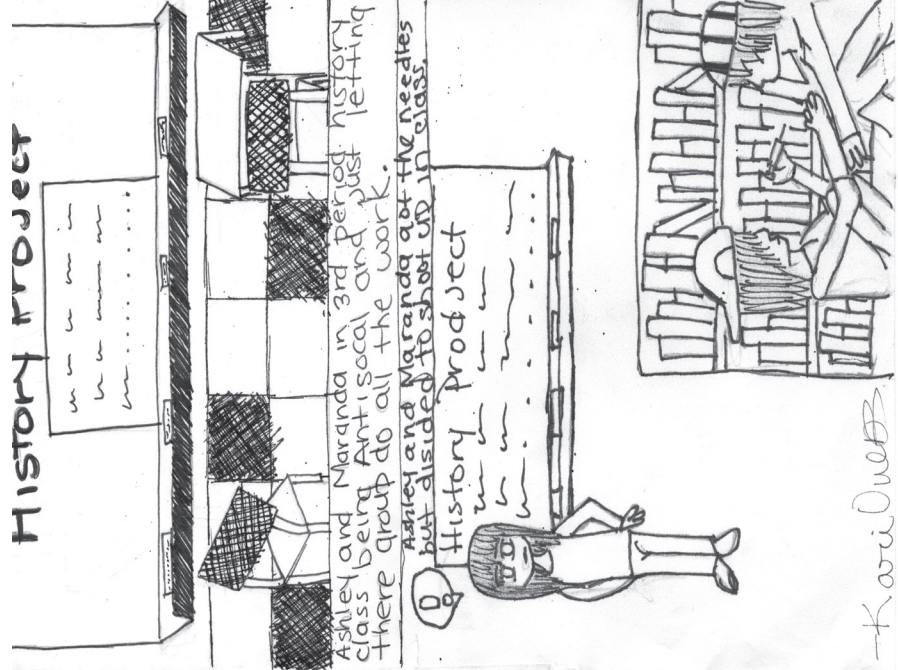 History Project
Ashley and Maranda in 3rd period history
class being Antisocal and just letting
there group do all the work.
Ashley and Maranda got the needles
but disided to shoot up in class.
History Prodject